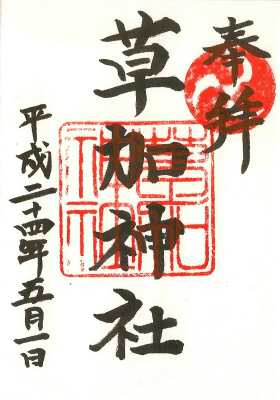 奉拝
草加神社
平成二十四年五月一日
草加神社